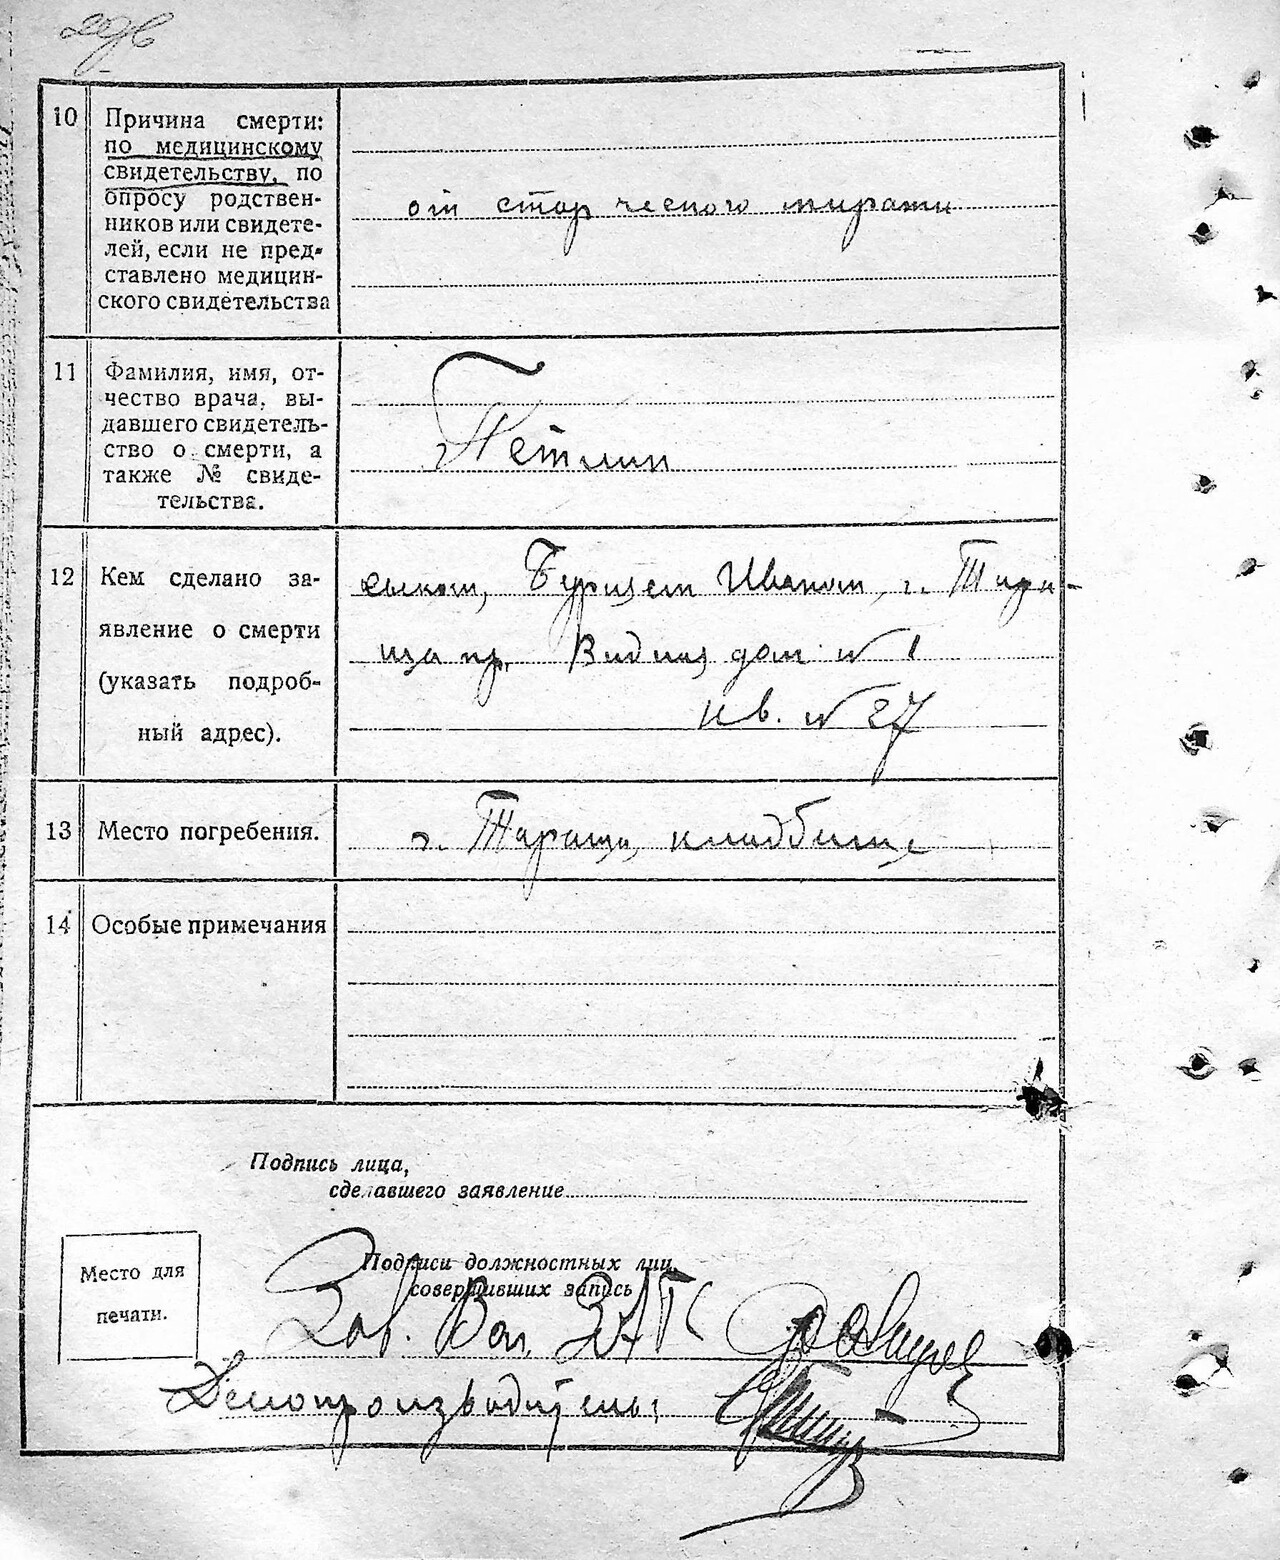 10 Причина смерти:
по медицинскому
свидетельству, по
опросу родствен-
ников или свидете-
лей, если не пред-
ставлено медицин-
ского свидетельства
от стар ческого
11 Фамилия, имя, от-
чество врача, вы-
давшего свидетель-
ство о смерти, а
также № свиде-
тельства.
Петлин
12 Кем сделано за-
явление о смерти
(указать подроб-
ный адрес).
Иваном, г. Тара-
ща пр. дом № 1
кв. № 27
13 Место погребения.
г. Тараща, кладбище
14 Особые примечания
Подпись лица,
сделавшего заявление
Место для
печати.
Подписи должностных лиц,
совершивших запись
Зав. ЗАГС
Делопроизводитель: